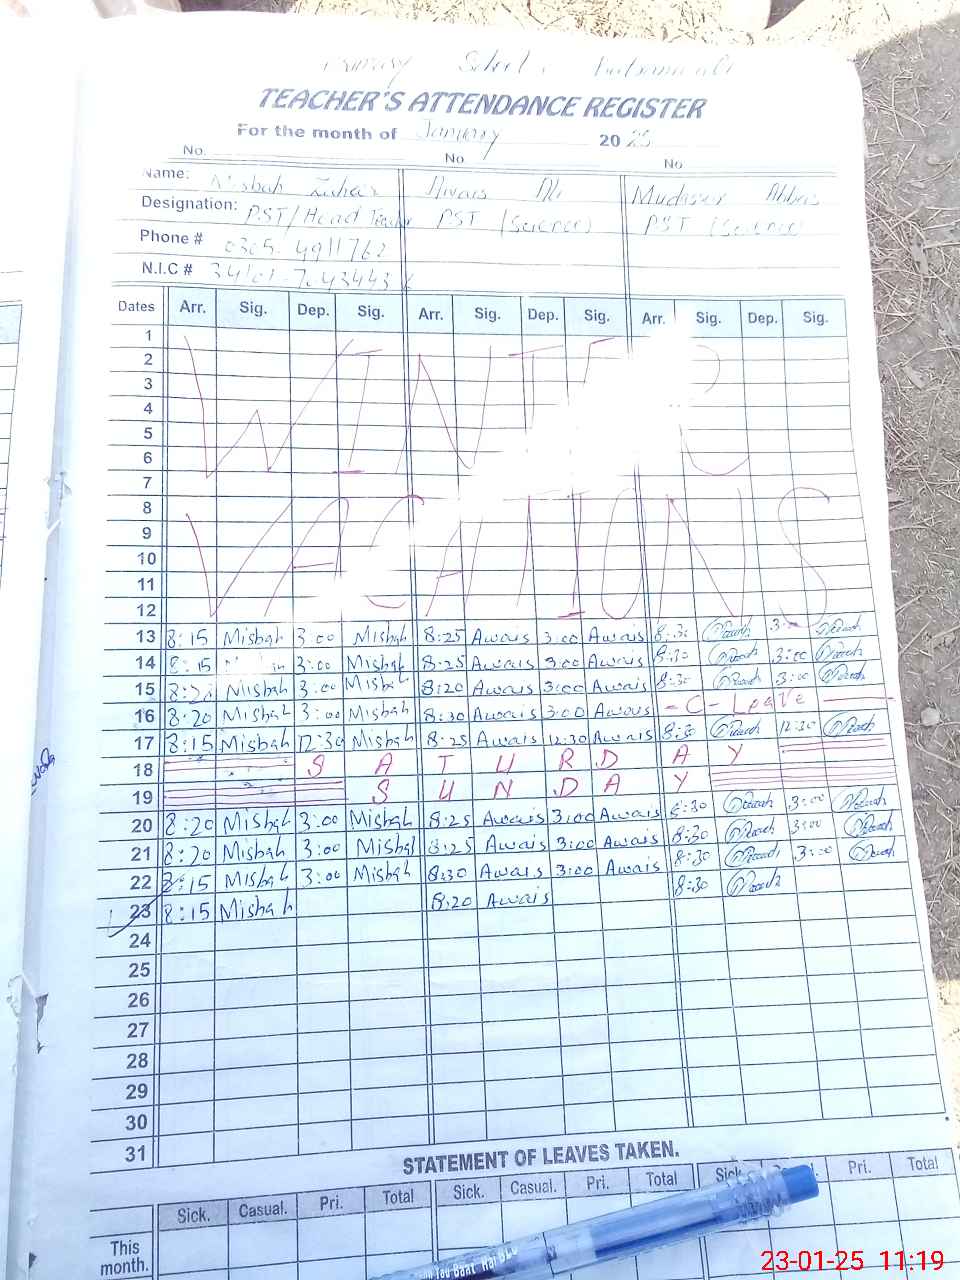 Primary School
TEACHER'S ATTENDANCE REGISTER
For the month of January 2025
No. No No
Name: Misbah Awais Ali Mudassar Abbas
Designation: PST/Head Teacher PST (Science) PST (Science)
Phone # 0305-4911762
N.I.C #
Dates Arr. Sig. Dep. Sig. Arr. Sig. Dep. Sig. Arr. Sig. Dep. Sig.
1
2
3
4
5
6
WINTER
7
8
9
10
11
12
VACATIONS
13 8:15 Misbah 3:00 Misbah 8:25 Awais 3:00 Awais 8:30
14 8:15 3:00 Misbah 8:25 Awais 3:00 Awais 8:30 3:00
15 Misbah 3:00 Misbah 8:20 Awais 3:00 Awais 8:30 3:00
16 8:20 Misbah 3:00 Misbah 8:30 Awais 3:00 Awais - C - Leave
17 8:15 Misbah 12:30 Misbah 8:25 Awais 12:30 Awais 8:30 12:30
18 SATURDAY
19 SUNDAY
20 8:20 Misbah 3:00 Misbah 8:25 Awais 3:00 Awais 8:30 3:00
21 8:20 Misbah 3:00 Misbah 8:25 Awais 3:00 Awais 8:30 3:00
22 8:15 Misbah 3:00 Misbah 8:30 Awais 3:00 Awais 8:30 3:00
23 8:15 Misbah 8:20 Awais 8:30
24
25
26
27
28
29
30
31
STATEMENT OF LEAVES TAKEN.
Sick. Casual. Pri. Total Sick. Casual. Pri. Total Sick Pri. Total
This
month.
Tau Baat Hai
23-01-25 11:19